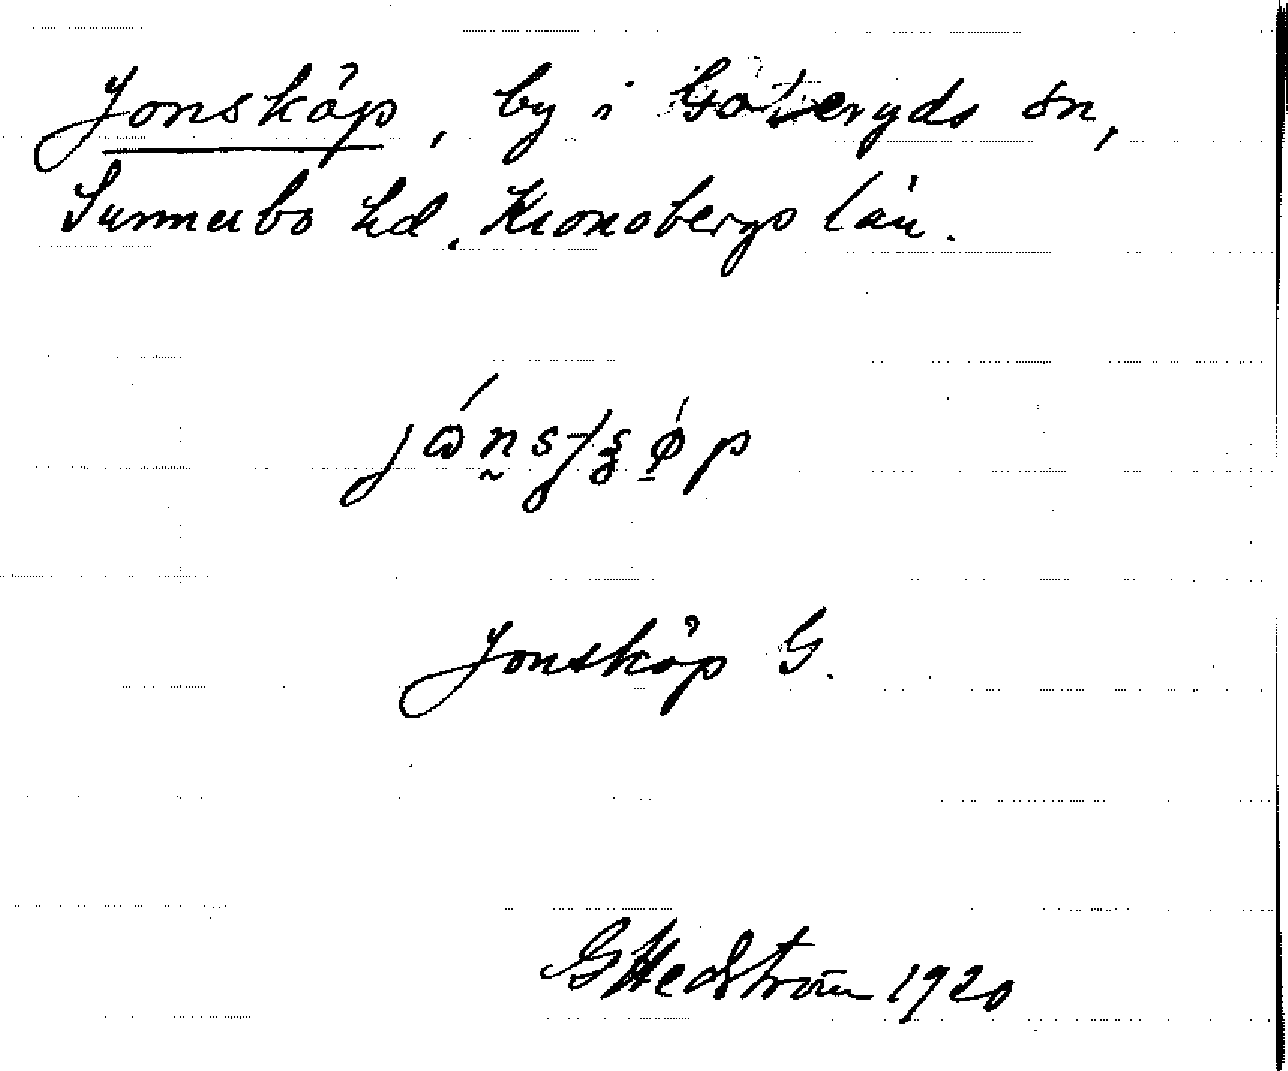 Jonsköp, by i Göteryds sn,
Sunnerbo hd, Kronobergs län.
Jonsköp G.
G Hedström 1920